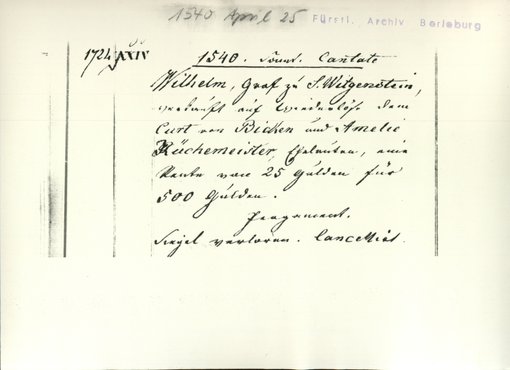 1540 April 25 Fürstl. Archiv Berleburg
1724 XXIV 1540. Sonnt. Cantate
Wilhelm, Graf zu S. Witgenstein,
verkauft auf Wiederlöse dem
Curt von Bicken und Amelie
Küchemeister, Eheleuten, eine
Rente von 25 Gulden für
500 Gulden.
Pergament.
Siegel verloren. Cancellirt.